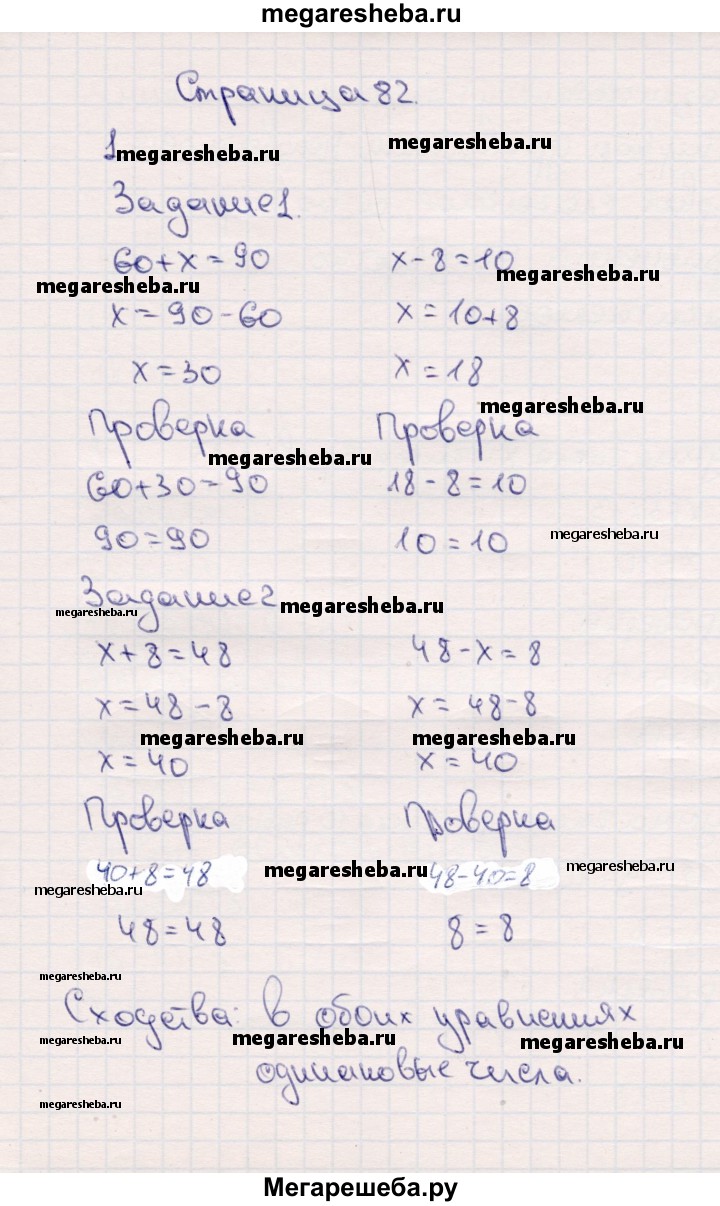 megaresheba.ru
Страница 82.
1
megaresheba.ru
megaresheba.ru
Задание 1.
60+x=90
x-8=10
megaresheba.ru
megaresheba.ru
x=90-60
x=10+8
x=30
x=18
megaresheba.ru
Проверка
Проверка
megaresheba.ru
60+30=90
18-8=10
megaresheba.ru
90=90
10=10
Задание 2
megaresheba.ru
megaresheba.ru
x+8=48
48-x=8
x=48-8
x=48-8
megaresheba.ru
megaresheba.ru
x=40
x=40
Проверка
Проверка
40+8=48
48-40=8
megaresheba.ru
megaresheba.ru
megaresheba.ru
48=48
8=8
megaresheba.ru
Сходства: в обоих уравнениях
megaresheba.ru
megaresheba.ru
megaresheba.ru
одинаковые числа.
megaresheba.ru
Мегарешеба.ру